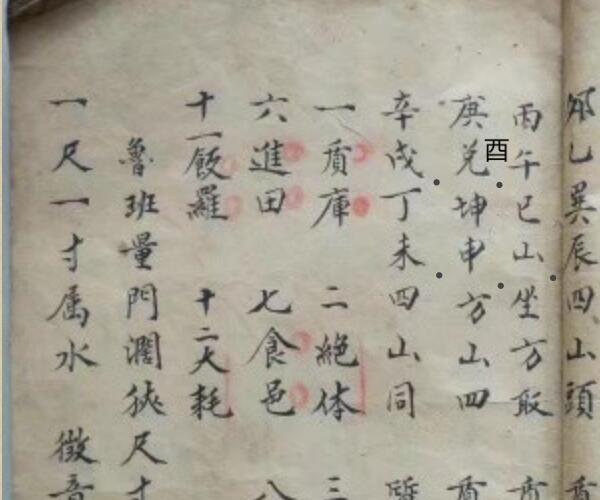 卯乙巽辰四山頭
丙午巳山坐方取
酉
庚兌坤申方山四
辛戌丁未四山同
一質庫 二絕体 三
六進田 七食邑 八
十一飯羅 十二大耗
魯班量門濶狹尺寸
一尺一寸属水 徵音